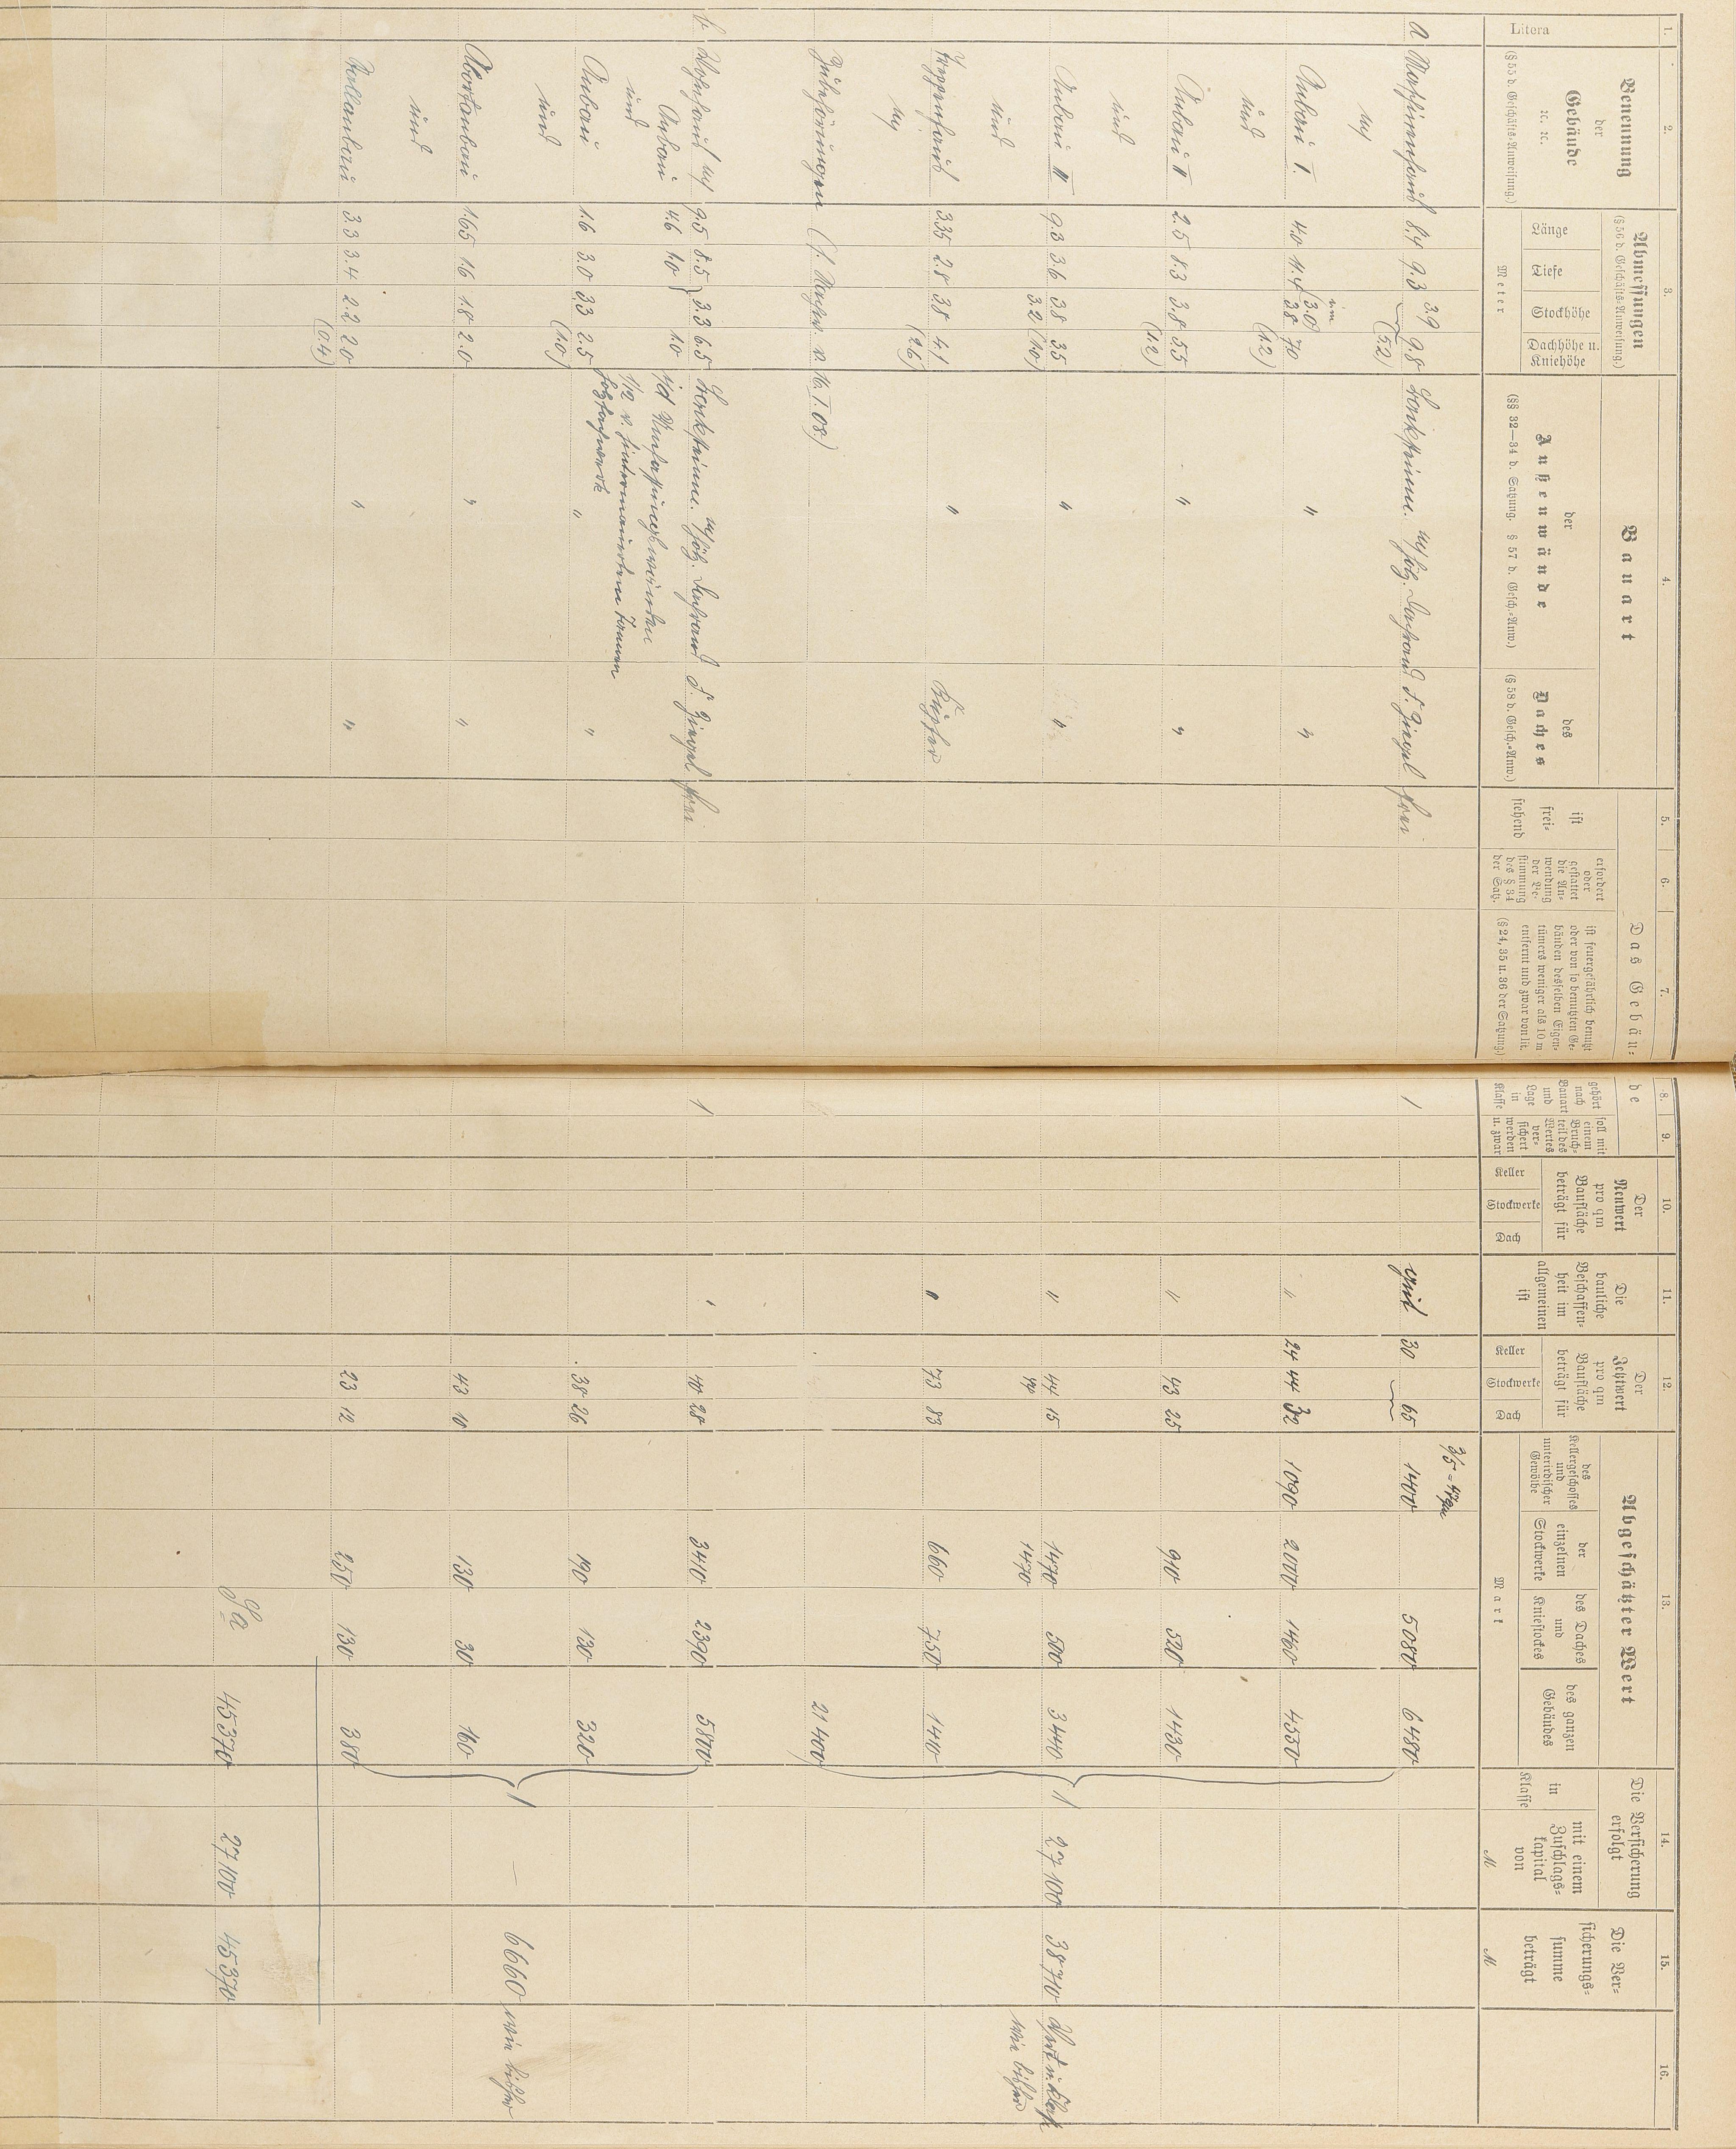 1. 2. 3. 4. 5. 6. 7. 8. 9. 10. 11. 12. 13. 14. 15. 16.
Litera
Benennung
der
Gebäude
ꝛc. ꝛc.
(§ 55 d. Geschäfts-Anweisung.)
Abmessungen
(§ 56 d. Geschäfts-Anweisung.)
Länge
Tiefe
Stockhöhe
Dachhöhe u.
Kniehöhe
Meter
Bauart
der
Außenwände
(§§ 32—34 d. Satzung. § 57 d. Gesch.-Anw.)
des
Daches
(§ 58 d. Gesch.-Anw.)
Das Gebäu-
ist
frei-
stehend
erfordert
oder
gestattet
die An-
wendung
der Be-
stimmung
des § 34
der Satz.
ist feuergefährlich benutzt
oder von so benutzten Ge-
bäuden desselben Eigen-
tümers weniger als 10 m
entfernt und zwar von lit.
(§ 24, 35 u. 36 der Satzung.)
de
gehört
nach
Bauart
und
Lage
in
Klasse
soll mit
einem
Bruch-
teil des
Wertes
ver-
sichert
werden
u. zwar
Der
Neuwert
pro qm
Baufläche
beträgt für
Keller
Stockwerke
Dach
Die
bauliche
Beschaffen-
heit im
allgemeinen
ist
Der
Jetztwert
pro qm
Baufläche
beträgt für
Keller
Stockwerke
Dach
Abgeschätzter Wert
des
Kellergeschosses
und
unterirdischer
Gewölbe
der
einzelnen
Stockwerke
des Daches
und
Kniestockes
des ganzen
Gebäudes
Mark
Die Versicherung
erfolgt
in
Klasse
mit einem
Zuschlags-
kapital
von
M
Die Ver-
sicherungs-
summe
beträgt
M
3.9
a 8.4 9.3 9.8 Backsteinm. m/ hölz. d. Ziegel frei 1 gut 30 65 1400 5080 6480
m/ (5.2)
im
3.0
Anbau I. 4.0 11.4 3.8 7.0 " " " 24 44 32 1090 2000 1460 4550
und (1.2)
Anbau II 2.5 8.3 3.8 5.5 " " " 43 25 910 520 1430
und (1.2)
Anbau III 9.3 3.6 3.8 3.5 " " " 44 15 1470 500 3440 1 27100 38710
und 3.2 (1.0) 1470 wie bisher
Treppenhaus 3.35 2.8 3.8 4.1 " Kupfer " 73 83 660 750 1410
m/ (2.6)
Zubehörungen (s. v. 16. I. 08.) 21400
b. Wohnhaus m/ 9.5 8.5 3.3 6.5 Backsteinm. m/ hölz. d. Ziegel frei 1 " 40 28 3410 2390 5800
Anbau 4.6 1.0 1.0 Umfassungswänden
und 1/12 v. hintermauertem tannen
Anbau 1.6 3.0 3.3 2.5 Holzfachwerk " " 38 26 190 130 320
und (1.0) 1 — 6660 wie bisher
Abortanbau 1.65 1.6 1.8 2.0 " " 43 10 130 30 160
und
Stallanbau 3.3 3.4 2.2 2.0 " " 23 12 250 130 380
(0.4)
Sa 45370 27100 45370